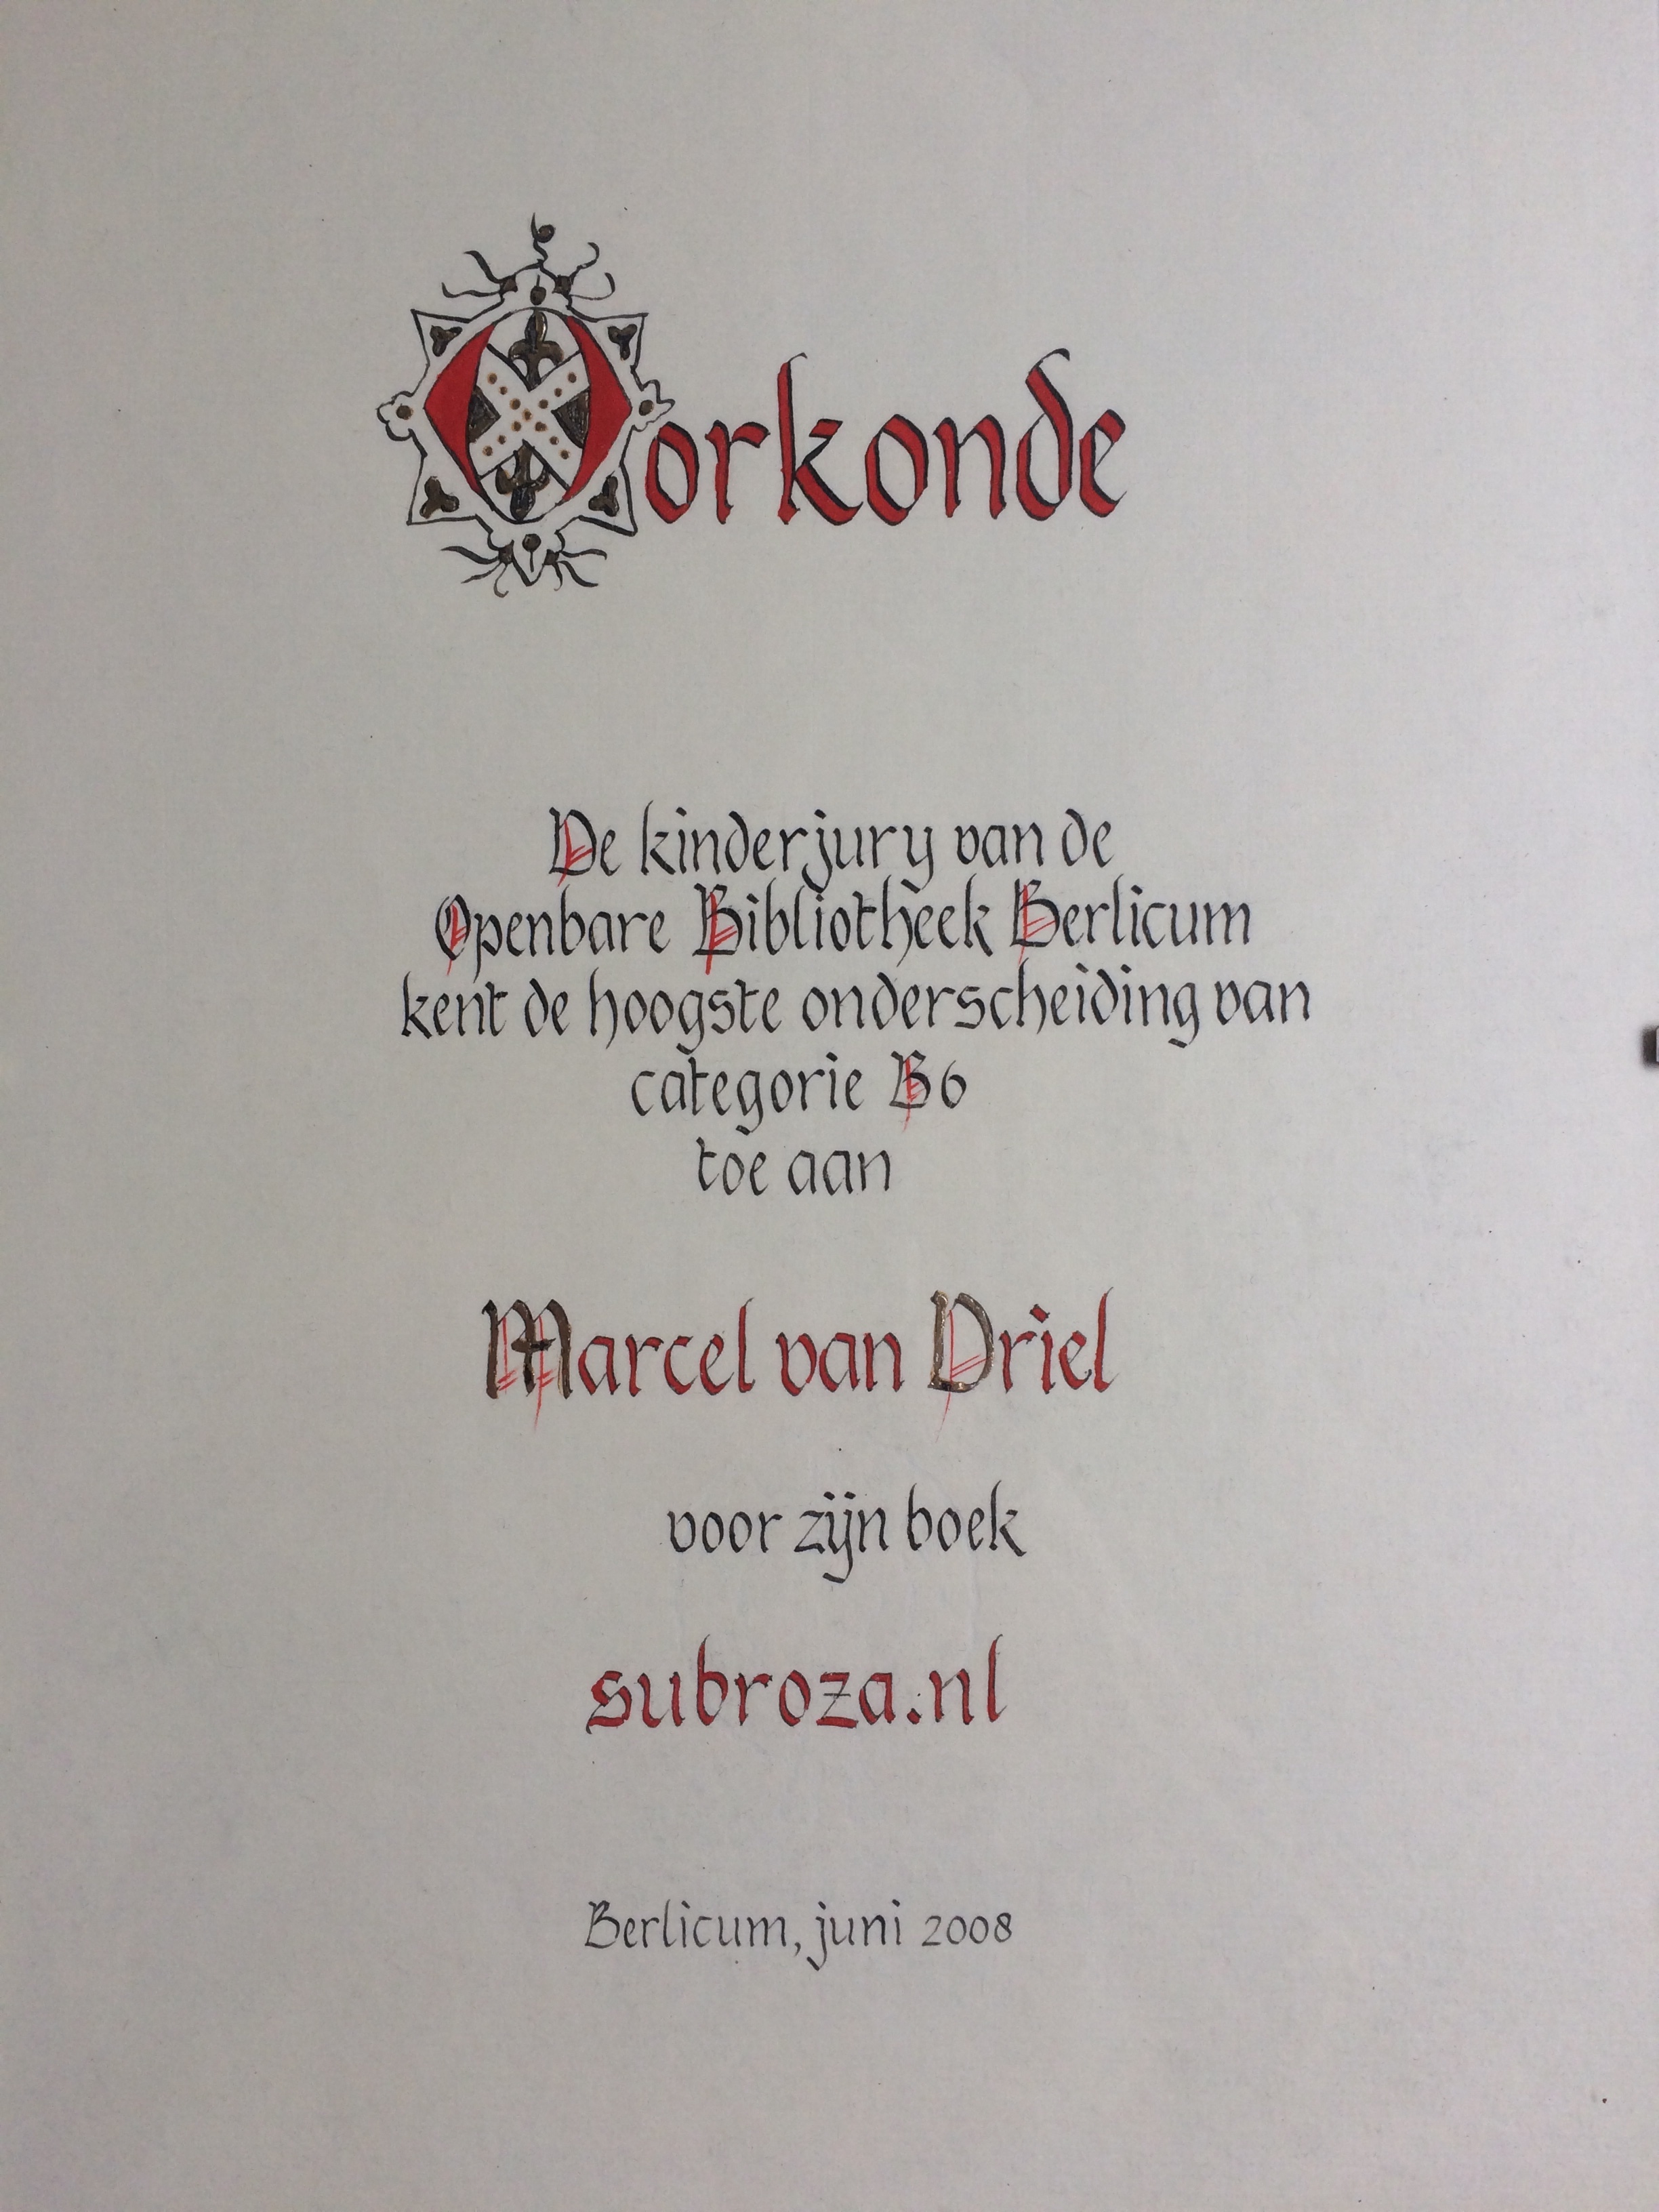 Oorkonde
De kinderjury van de
Openbare Bibliotheek Berlicum
kent de hoogste onderscheiding van
categorie B6
toe aan
Marcel van Driel
voor zijn boek
subroza.nl
Berlicum, juni 2008